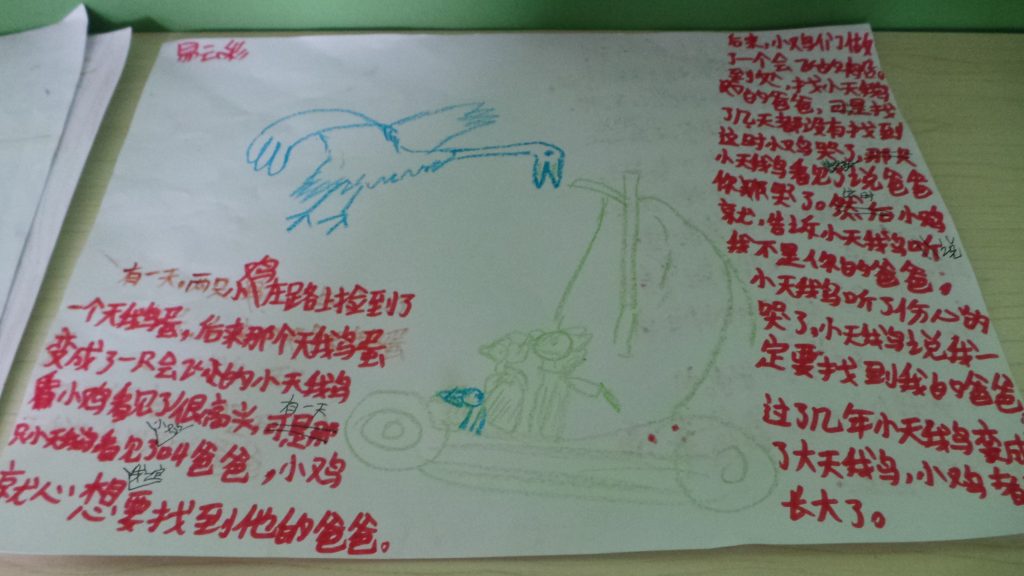 易云彩
有一天,两只小鸡在路上捡到了
一个天鹅蛋,后来那个天鹅蛋
变成了一只会飞的小天鹅
小鸡看见了很高兴,有一天
只小天鹅看见了叫爸爸,小鸡
就心想要找到他的爸爸。
后来,小鸡们做
了一个会飞的船。
到处,找小天鹅
的爸爸,可是找
了几天都没有找到
这时小鸡哭了,那只
小天鹅看见了说爸爸
你那哭了。然后小鸡
就,告诉小天鹅听说
我不是你的爸爸,
小天鹅听了伤心的
哭了,小天鹅说我一
定要找到我的爸爸
过了几年小天鹅变成
了大天鹅,小鸡也
长大了。